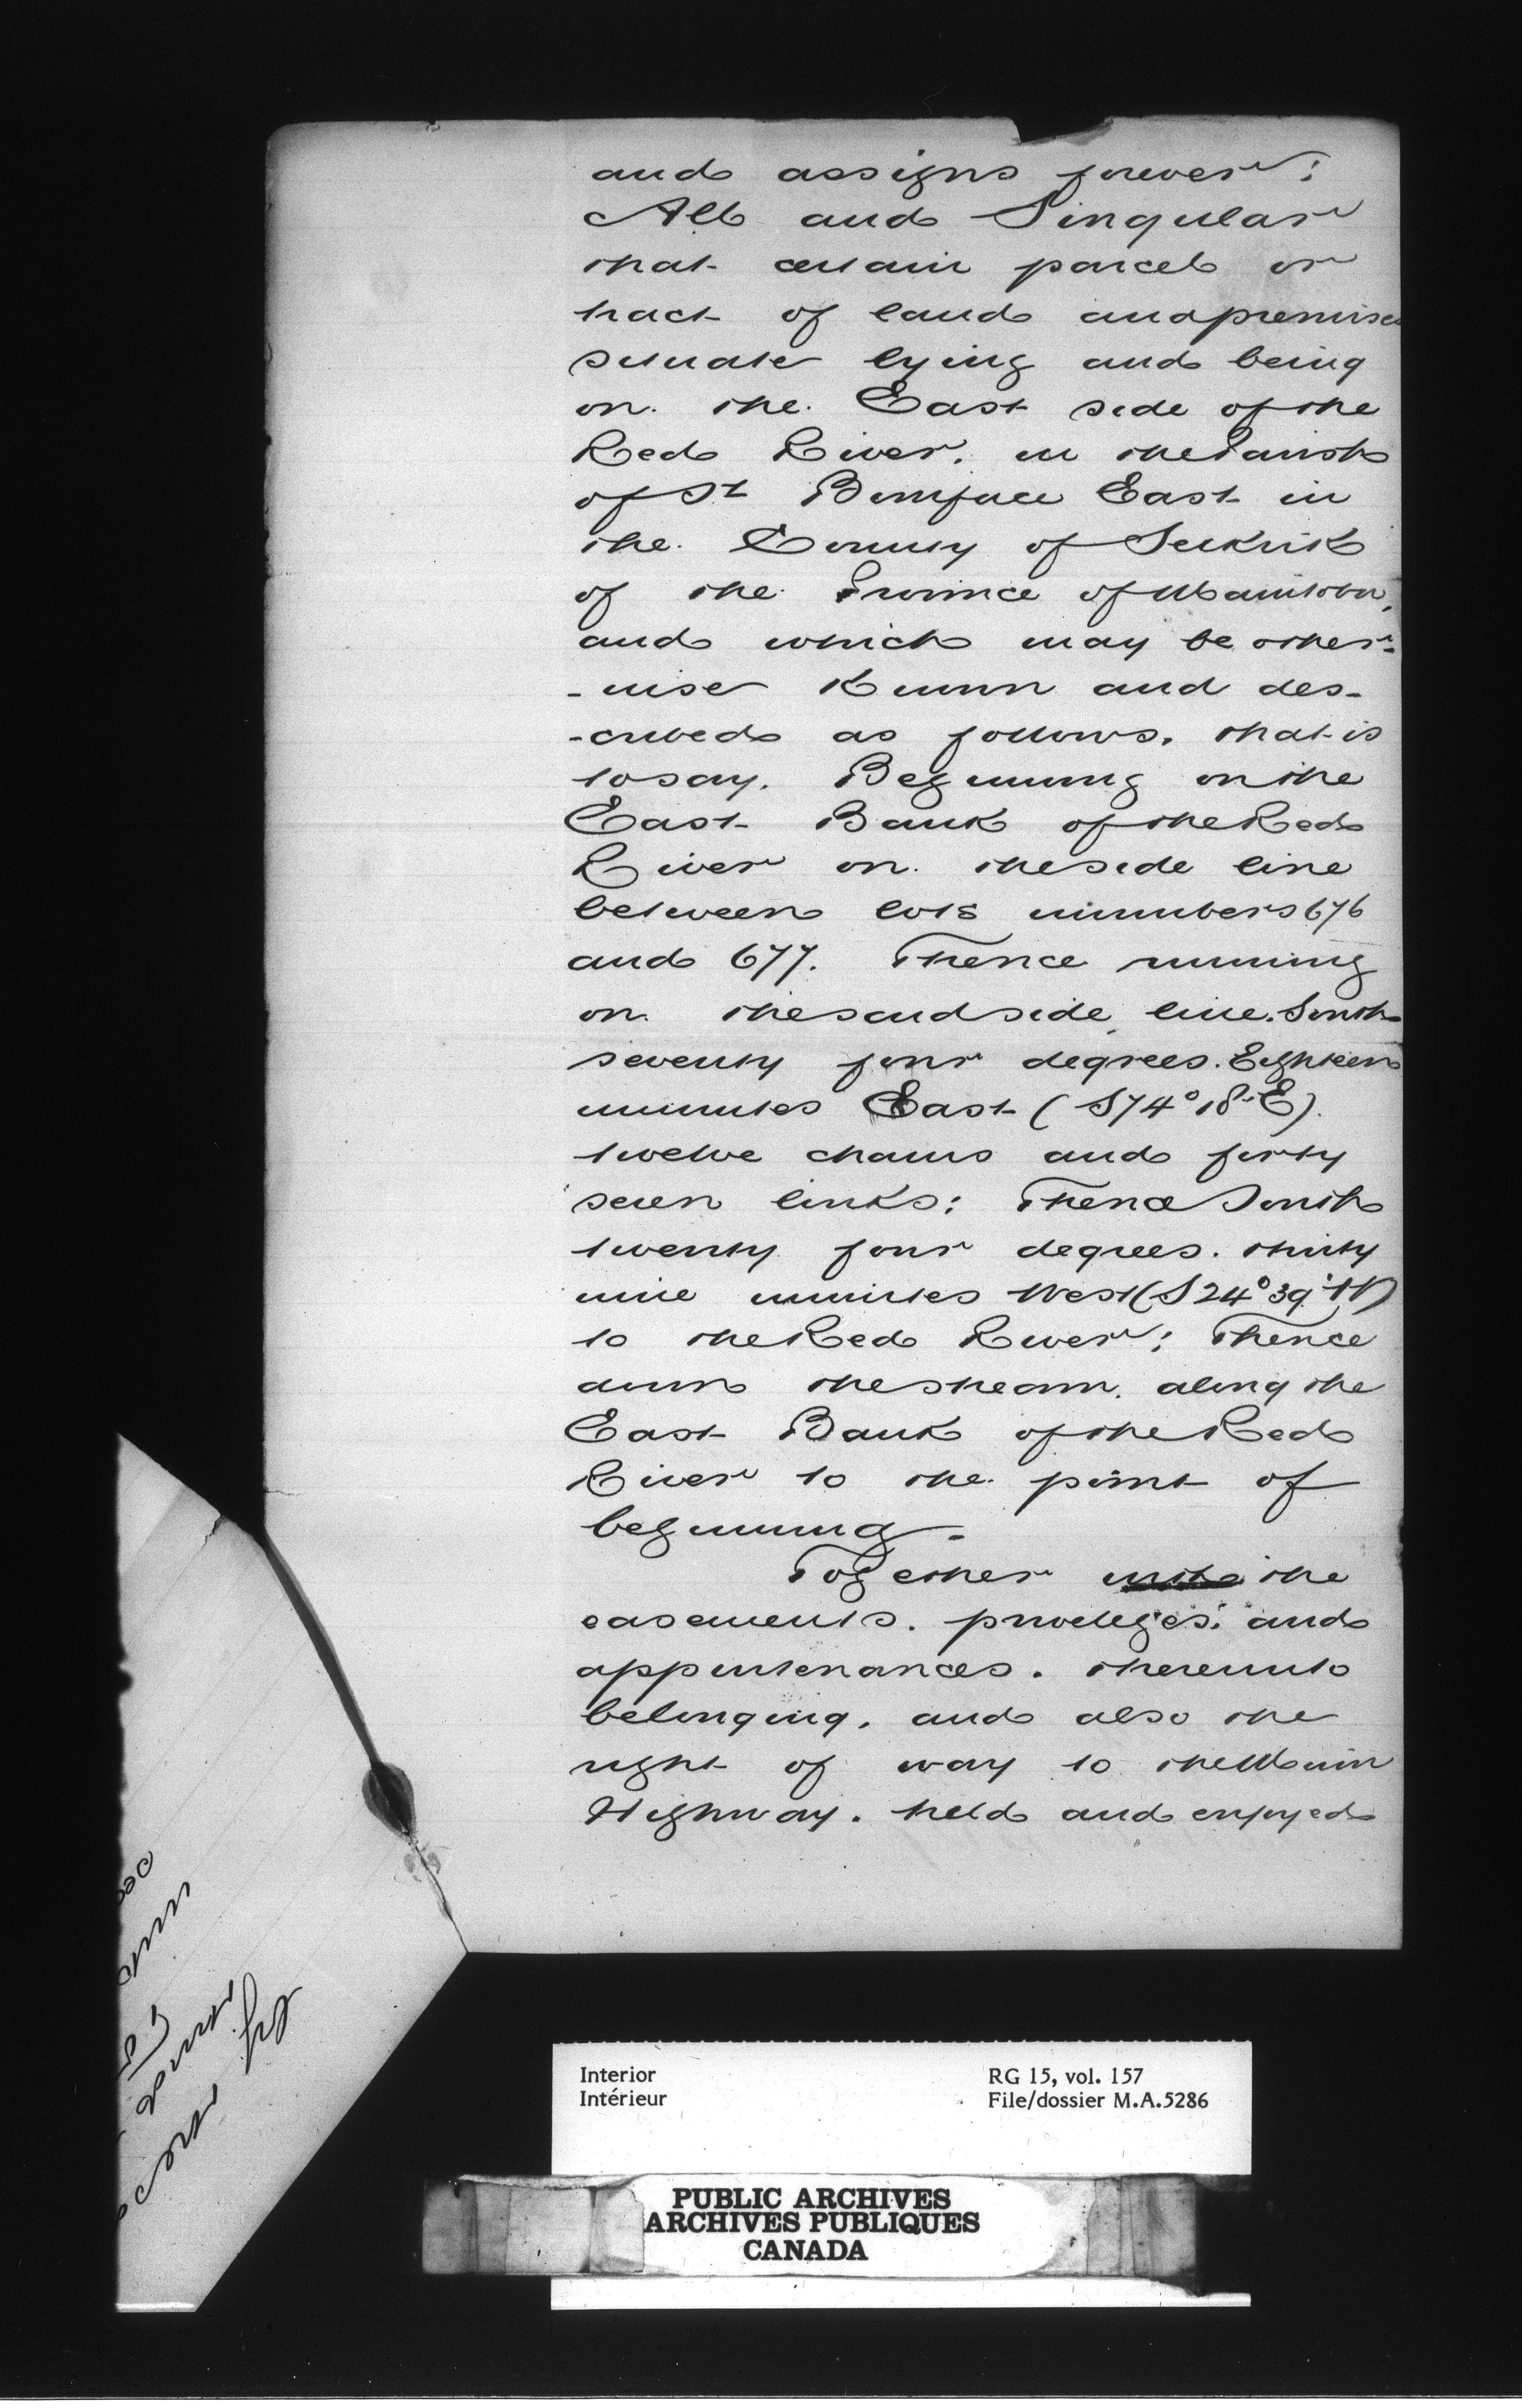 and assigns forever;
All and Singular
that certain parcel or
tract of land and premises
situate lying and being
on. the. East side of the
Red River. in the Parish
of St Boniface East in
the. County of Selkirk
of the Province of Manitoba,
and which may be other-
-wise Known and des-
-cribed as follows. that is
to say. Beginning on the
East Bank of the Red
River on. the side line
between lots numbers 676
and 677. Thence running
on. the said side line. South
seventy four degrees. Eighteen
minutes East (S74°18'E).
twelve chains and forty
seven links; Thence South
twenty four degrees. thirty
nine minutes West (S24°39'W)
to the Red River; Thence
down the stream. along the
East Bank of the Red
River to the. point of
beginning-
Together with the
easements. privileges. and
appurtenances. thereunto
belonging. and also the
right of way to the Main
Highway. held and enjoyed
Interior
Intérieur
RG 15, vol. 157
File/dossier M.A.5286
PUBLIC ARCHIVES
ARCHIVES PUBLIQUES
CANADA